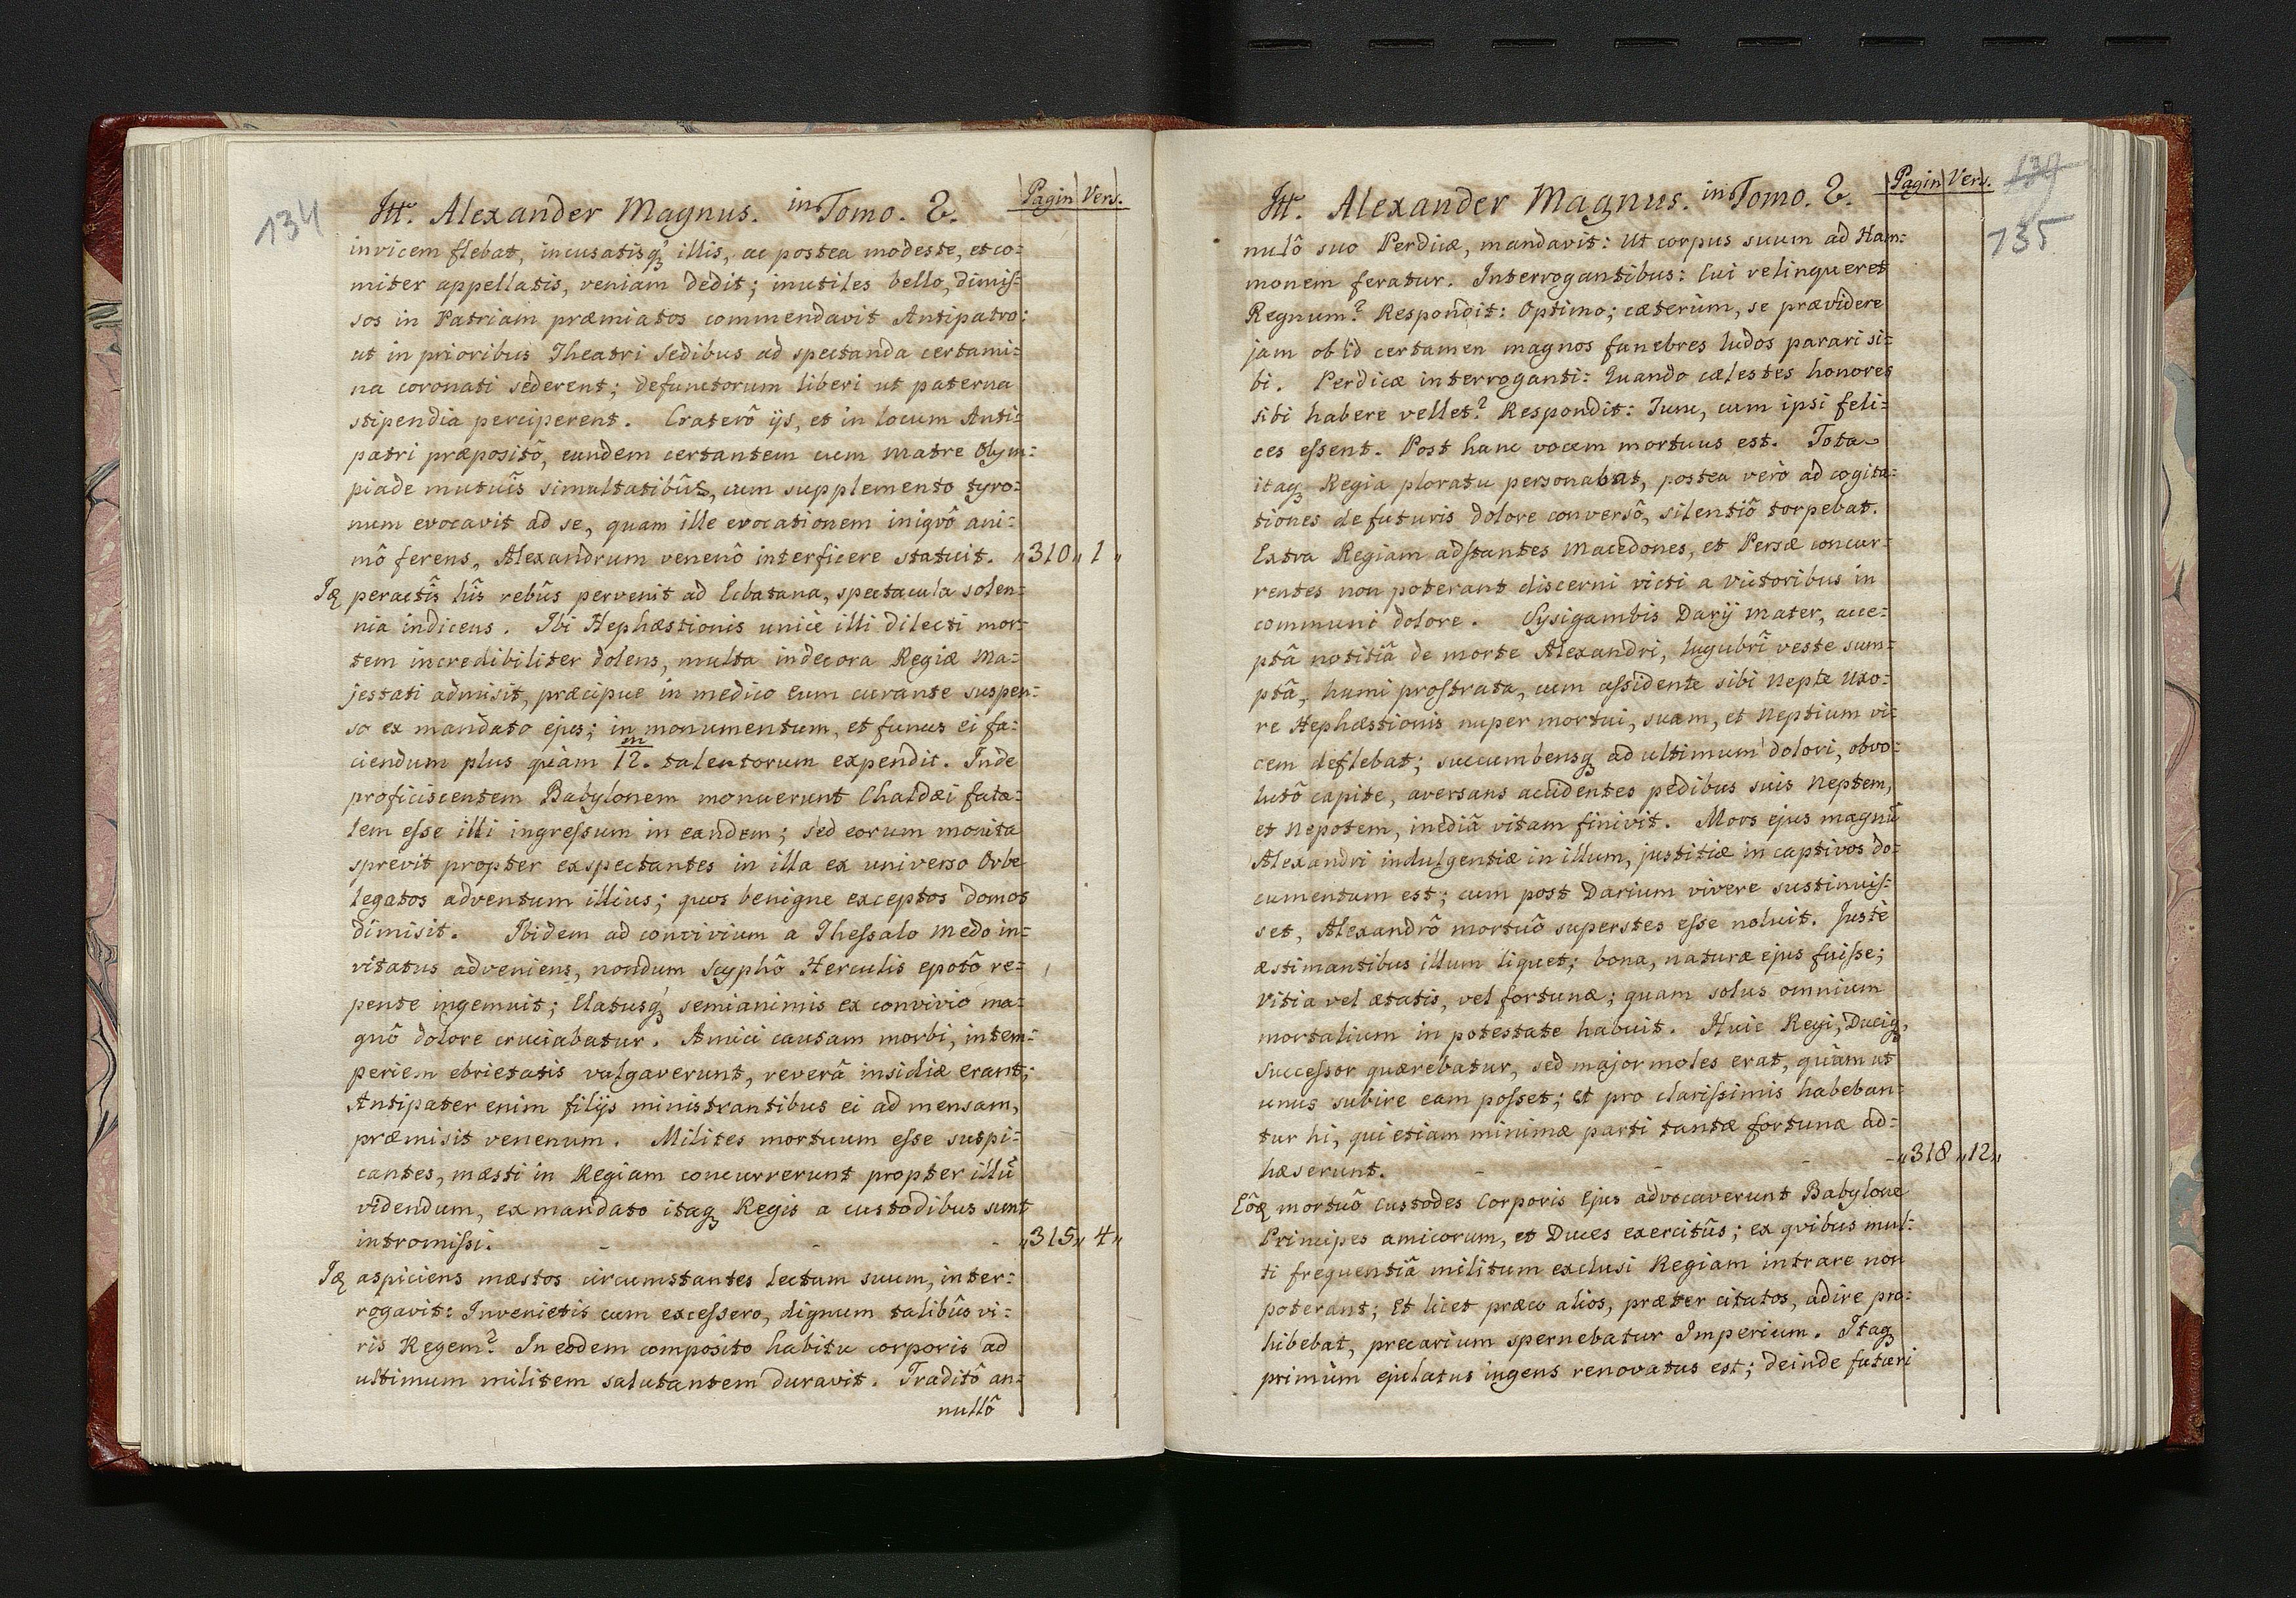 134
Itt. Alexander Magnus. in Tomo. 2. Pagin Vers.
invicem flebat, incusatisq́ꝫ illis, ac postea modeste, et co=
miter appellatis, veniam dedit; inutiles bello, dimiſ=
sos in Patriam præmiatos commendavit Antipatro:
ut in prioribus Theatri sedibus ad spectanda certami=
na coronati sederent; defunctorum liberi ut paterna
stipendia perciperent. Craterô ijs, et in locum Anti=
patri præpositô, eundem certantem cum Matre Olym=
piade mutuîs simultatibûs, cum supplemento tyro=
num evocavit ad se, quam ille evocationem iniqvô ani=
mô ferens, Alexandrum venenô interficere statuit. „310„ 1„
Iꝫ peractîs hîs rebûs pervenit ad Ecbatana, spectacula solen=
nia indicens. Ibi Hephæstionis unicè illi dilecti mor=
tem incredibiliter dolens, multa indecora Regiæ Ma=
jestati admisit, præcipue in medico Eum curante suspen=
so ex mandato ejus; in monumentum, et funus ei fa=
ciendum plus quàm 12.m talentorum expendit. Inde
proficiscentem Babylonem monuerunt Chaldæi fata=
lem eſse illi ingreſsum in eandem; sed eorum monita
sprevit propter exspectantes in illa ex universo Orbe
legatos adventum illius; quos benigne exceptos domos
dimisit. Ibidem ad convivium a Theſsalo Medo in=
vitatus adveniens, nondum Scyphô Herculis epotô re=
pente ingemuit; Elatusq́ꝫ semianimis ex convivio ma=
gnô dolore cruciabatur. Amici causam morbi, intem=
periem ebrietatis vulgaverunt, reverâ insidiæ erant;
Antipater enim filijs ministrantibus ei ad mensam,
præmisit venenum. Milites mortuum eſse suspi=
cantes, mæsti in Regiam concurrerunt propter illũ
videndum, ex mandato itaqꝫ Regis a custodibus sunt
intromiſsi. - - - „315„ 4„
Iꝫ aspiciens mæstos circumstantes lectum suum, inter=
rogavit: Invenietis cum exceſsero, dignum talibûs vi=
ris Regem? In eodem composito habitu corporis ad
ultimum militem salutantem duravit. Traditô an=
nullô
Itt. Alexander Magnus. in Tomo. 2. Pagin Vers.
135
nulô suo Perdicæ, mandavit: Ut corpus suum ad Ham=
monem feratur. Interrogantibus: Cui relinqueret
Regnum? Respondit: Optimo; cæterùm, se prævidere
jam ob id certamen magnos funebres ludos parari si=
bi. Perdicæ interroganti: Quando cælestes honores
sibi habere vellet? Respondit: Tunc, cum ipsi feli=
ces eſsent. Post hanc vocem mortuus est. Tota
itaqꝫ Regia ploratu personabat, postea verò ad cogita=
tiones de futuris dolore conversô, silentiô torpebat.
Extra Regiam adſtantes Macedones, et Persæ concur=
rentes non poterant discerni victi a victoribus in
communi dolore. Sysigambis Darij Mater, acce=
ptâ notitiâ de morte Alexandri, lugubrî veste sum=
ptâ, humi proſtrata, cum aſsidente sibi Nepte Uxo=
re Hephæstionis nuper mortui, suam, et Neptium vi=
cem deflebat; succumbensqꝫ ad ultimum dolori, obvo=
lutô capite, aversans accidentes pedibus suis Neptem,
et Nepotem, inediâ vitam finivit. Mors ejus magnũ
Alexandri indulgentiæ in illum, justitiæ in captivos do=
cumentum est; cum post Darium vivere sustinuiſ=
set, Alexandrô mortuô superstes eſse noluit. Justè
æstimantibus illum liquet; bona, naturæ ejus fuiſse;
Vitia vel ætatis, vel fortunæ; quam solus omnium
mortalium in potestate habuit. Huic Regi, Duciqꝫ,
Succeſsor quærebatur, sed major moles erat, quàm ut
unus subire eam poſset; Et pro clariſsimis habeban=
tur hi, qui etiam minimæ parti tantæ fortunæ ad=
hæserunt. - - - - „318„ 12„
Eôꝫ mortuô Custodes Corporis Ejus advocaverunt Babylone
Principes amicorum, et Duces exercitûs; ex qvibus mul=
ti frequentiâ militum exclusi Regiam intrare non
poterant; Et licet præco alios, præter citatos, adire pro=
hibebat, precarium spernebatur Imperium. Itaqꝫ
primùm ejulatus ingens renovatus est; deinde futuri